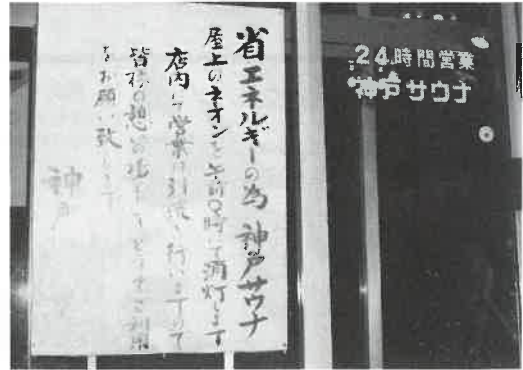 省エネルギーの為 神戸サウナ
屋上のネオンを午前0時にて消灯します
店内の営業は引続き行いますので
皆様の憩の場としてどうぞご利用
をお願い致します
神戸
24時間営業
神戸サウナ